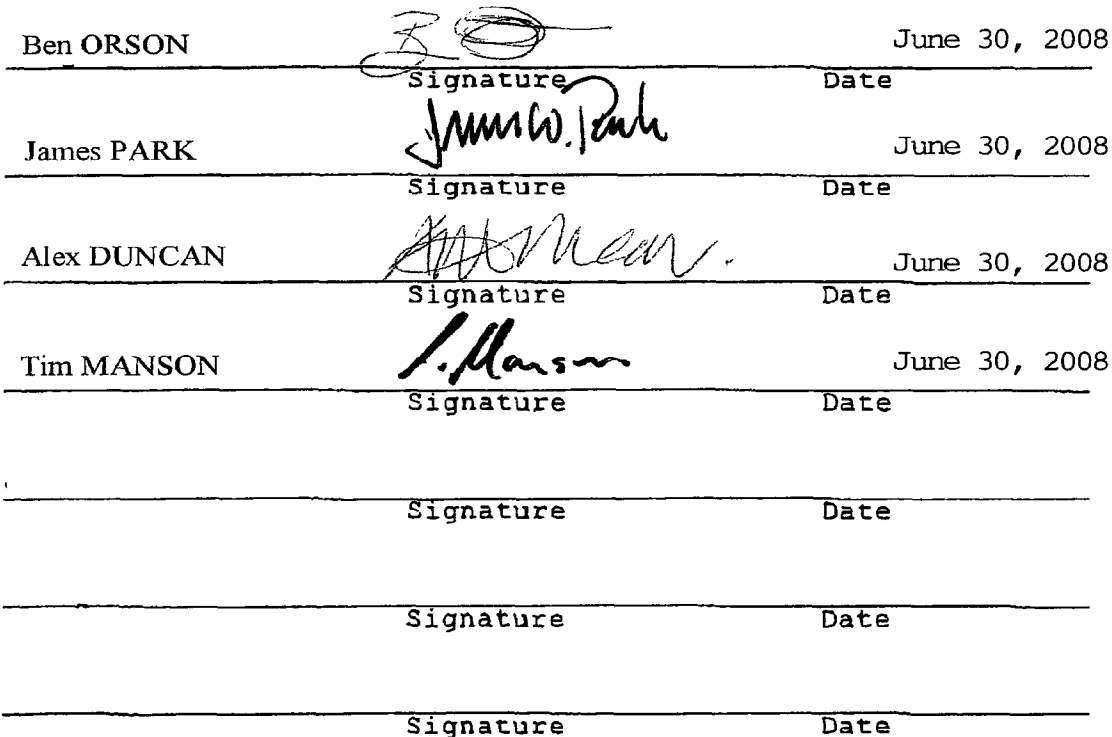 Ben ORSON June 30, 2008
Signature Date
James PARK James W. Park June 30, 2008
Signature Date
Alex DUNCAN June 30, 2008
Signature Date
Tim MANSON Manson June 30, 2008
Signature Date
Signature Date
Signature Date
Signature Date